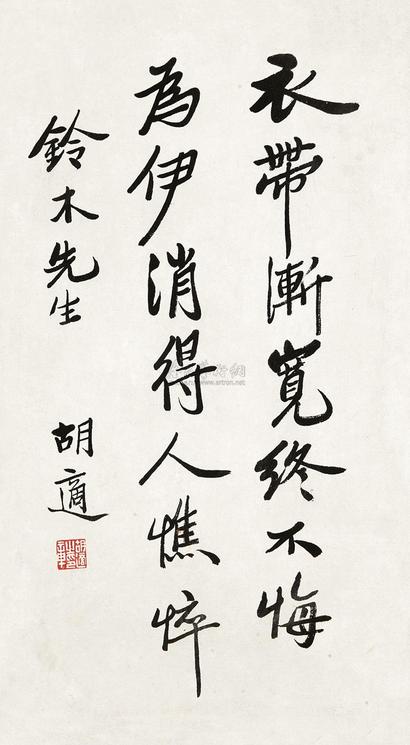 衣帶漸寬終不悔
為伊消得人憔悴
鈴木先生 胡適
www.artron.net